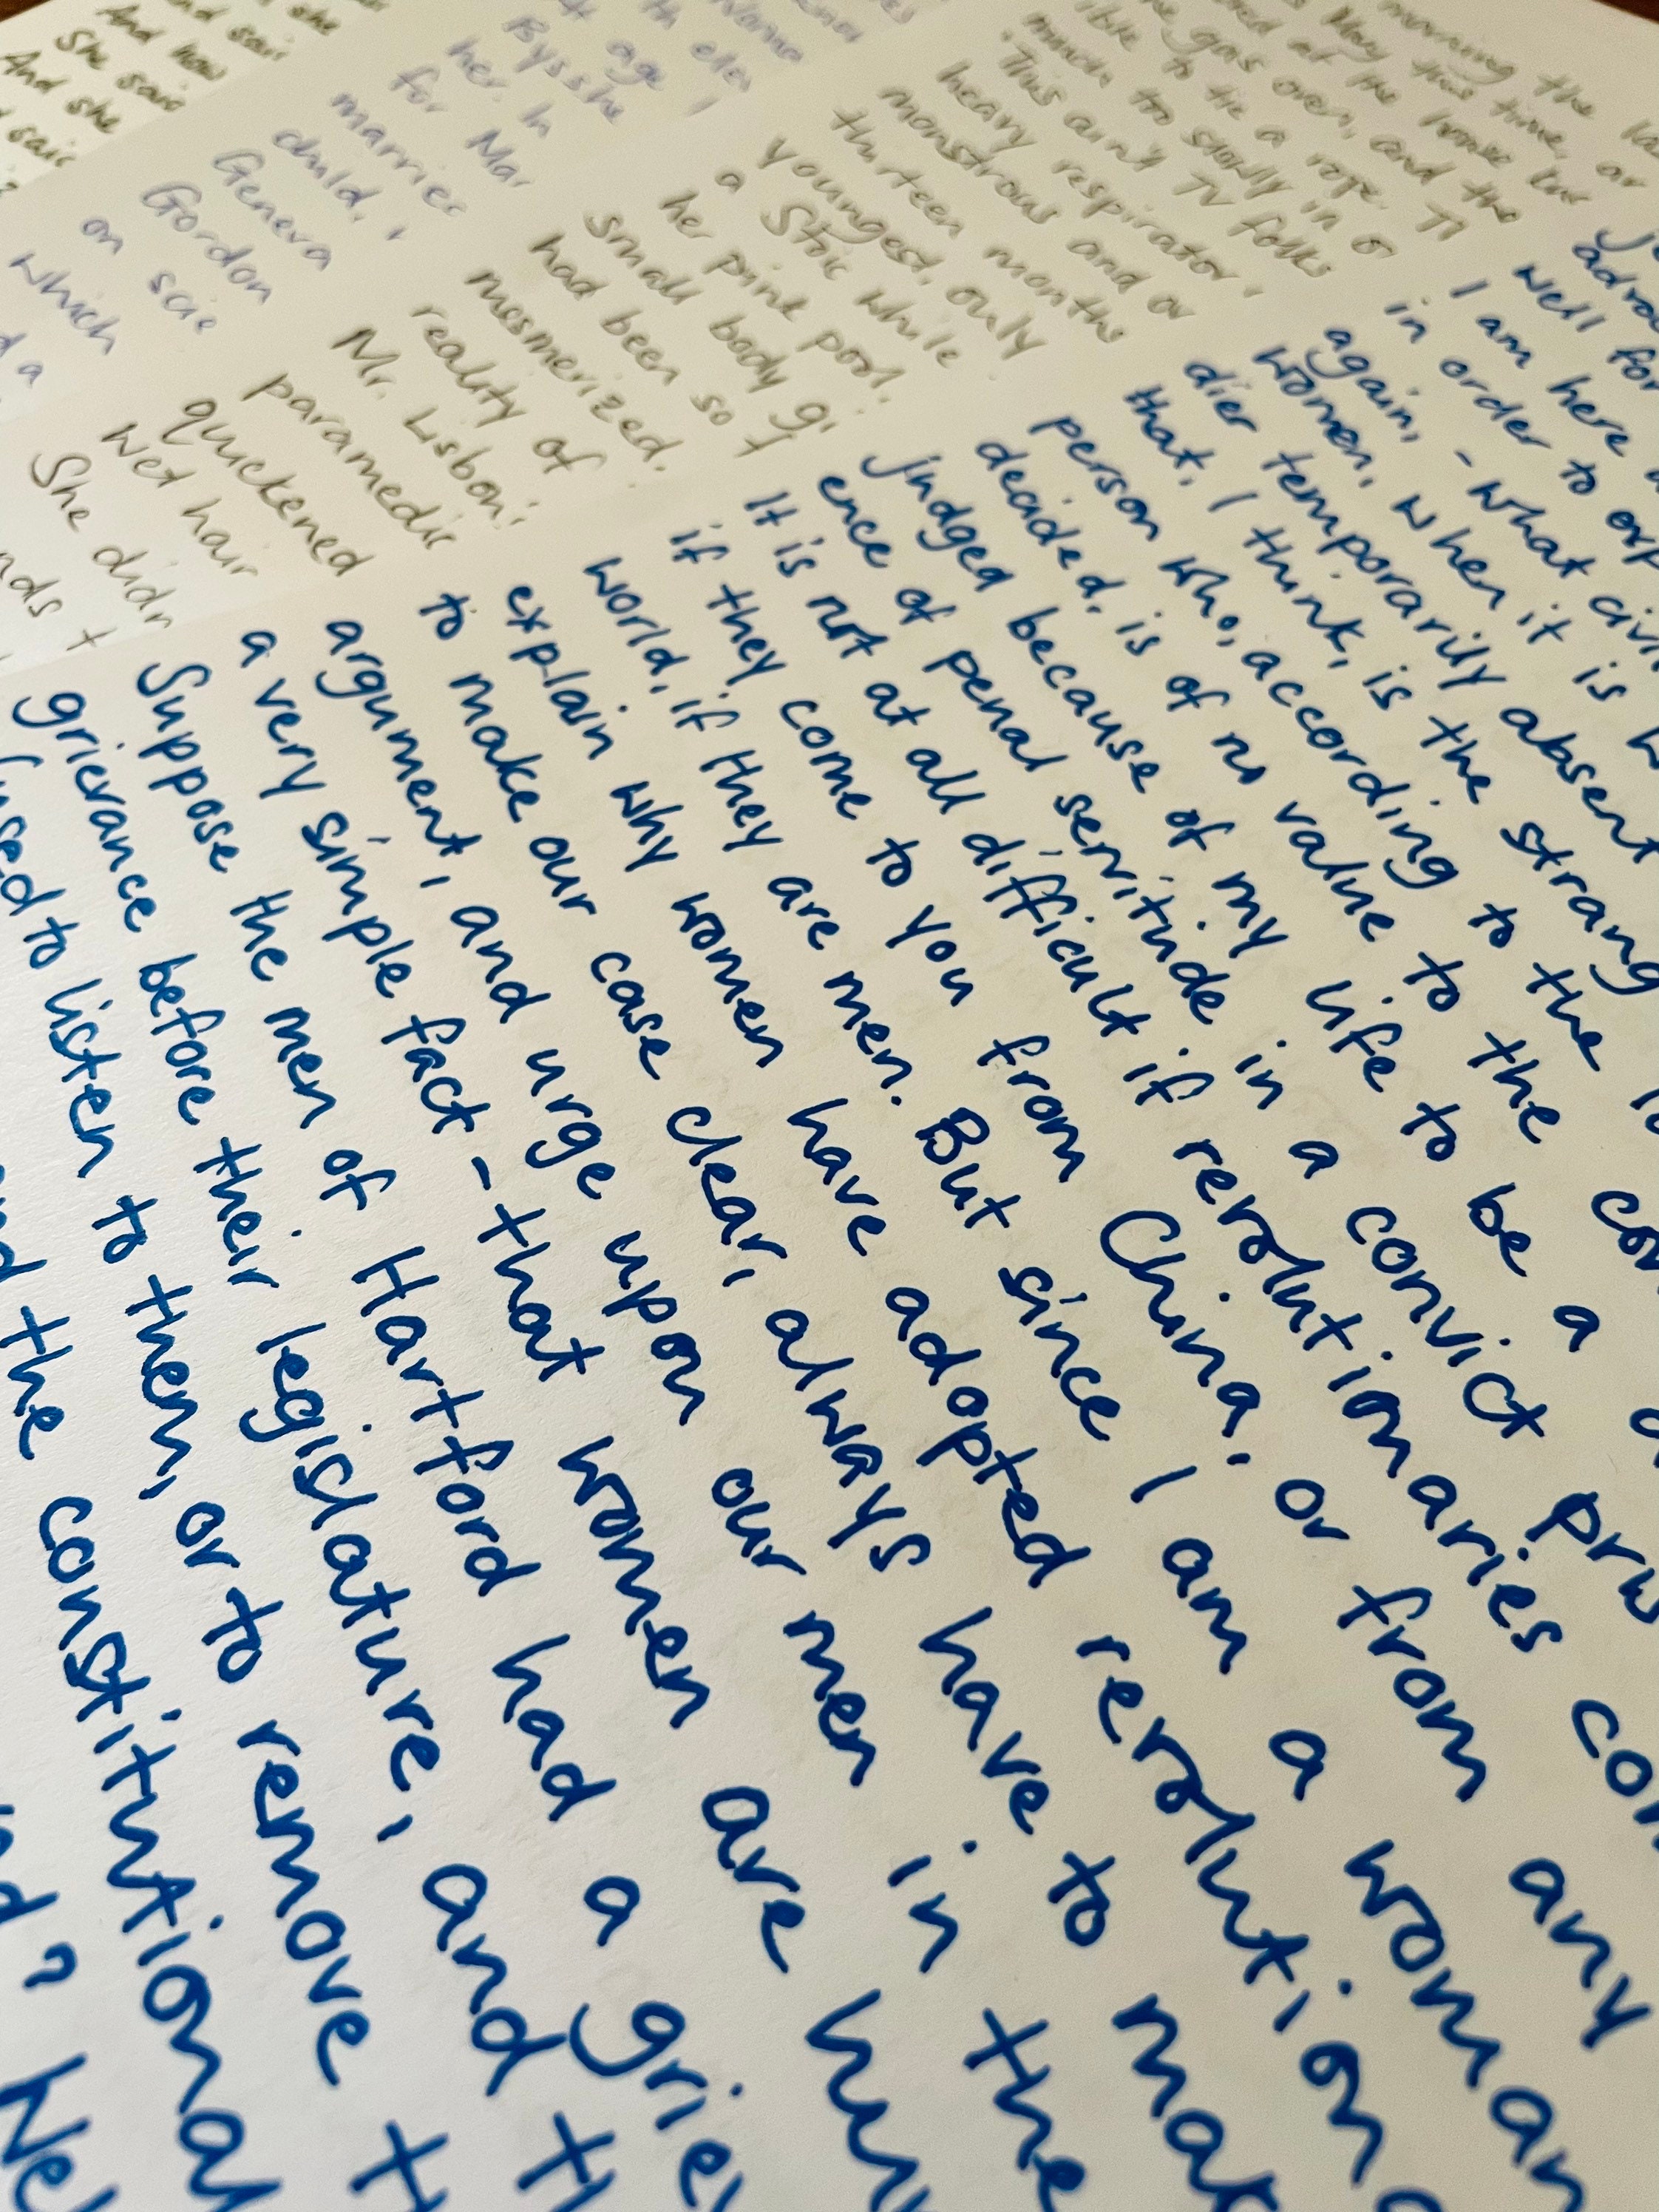 she
and said
And now
She said
And she
said
age
Bysshe
her. In
for Mar
married
child,
Geneva
Gordon
on scie
which
d a
morning the las
Mary this time, or
at the house but
the gas oven, and the
to tie a rope. T
much to slowly in o
'This ain't TV folks
heavy respirator,
monstrous and or
thirteen months
youngest, only
a Stoic while
her pink pool.
small body gi
had been so t
mesmerized.
reality of
Mr. Lisbon
paramedic
quickened
wet hair
She didn
nds t
advan
well for
I am here
in order to exp
again, - what civi
women, when it is h
dier temporarily absent
that, I think, is the strang
person who, according to the
decided, is of no value to the com
judged because of my life to be a d
ence of penal servitude in a convict pris
It is not at all difficult if revolutionaries com
if they come to you from China, or from any
world, if they are men. But since I am a woman
explain why women have adopted revolution
to make our case clear, always have to mak
argument, and urge upon our men in the
a very simple fact - that women are hum
Suppose the men of Hartford had a griev
grievance before their legislature, and th
used to listen to them, or to remove th
the constitutional